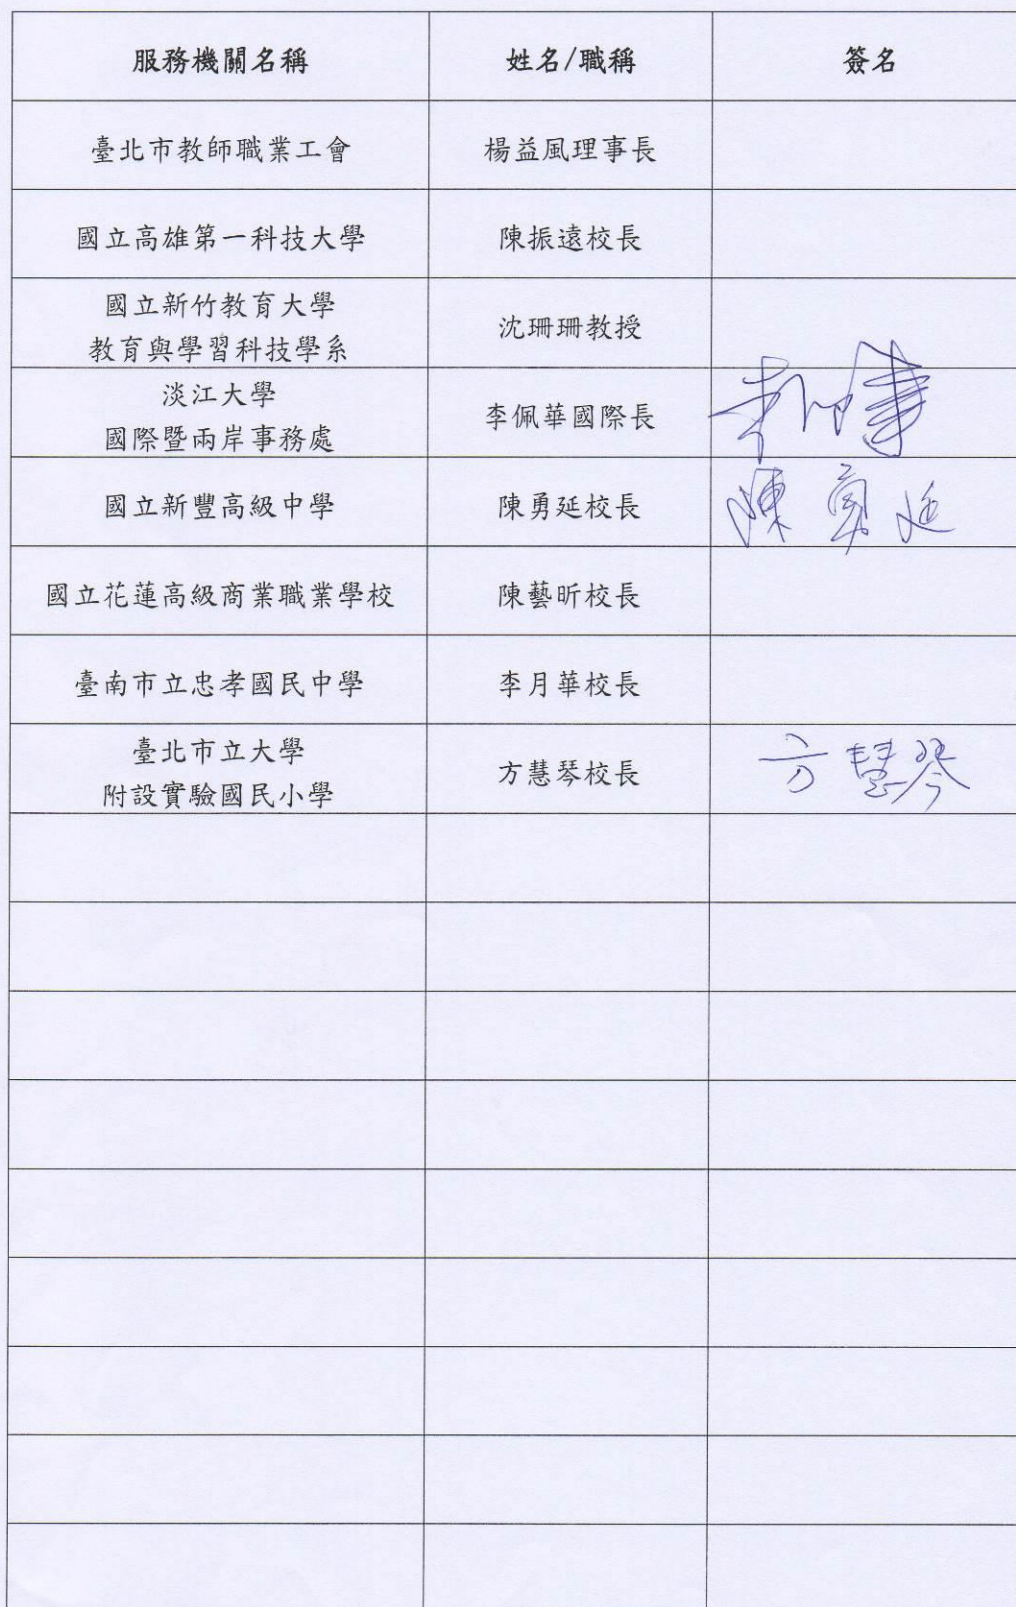 服務機關名稱 姓名/職稱 簽名
臺北市教師職業工會 楊益風理事長
國立高雄第一科技大學 陳振遠校長
國立新竹教育大學
教育與學習科技學系 沈珊珊教授
淡江大學
國際暨兩岸事務處 李佩華國際長 李佩華
國立新豐高級中學 陳勇延校長 陳勇延
國立花蓮高級商業職業學校 陳藝昕校長
臺南市立忠孝國民中學 李月華校長
臺北市立大學
附設實驗國民小學 方慧琴校長 方慧琴